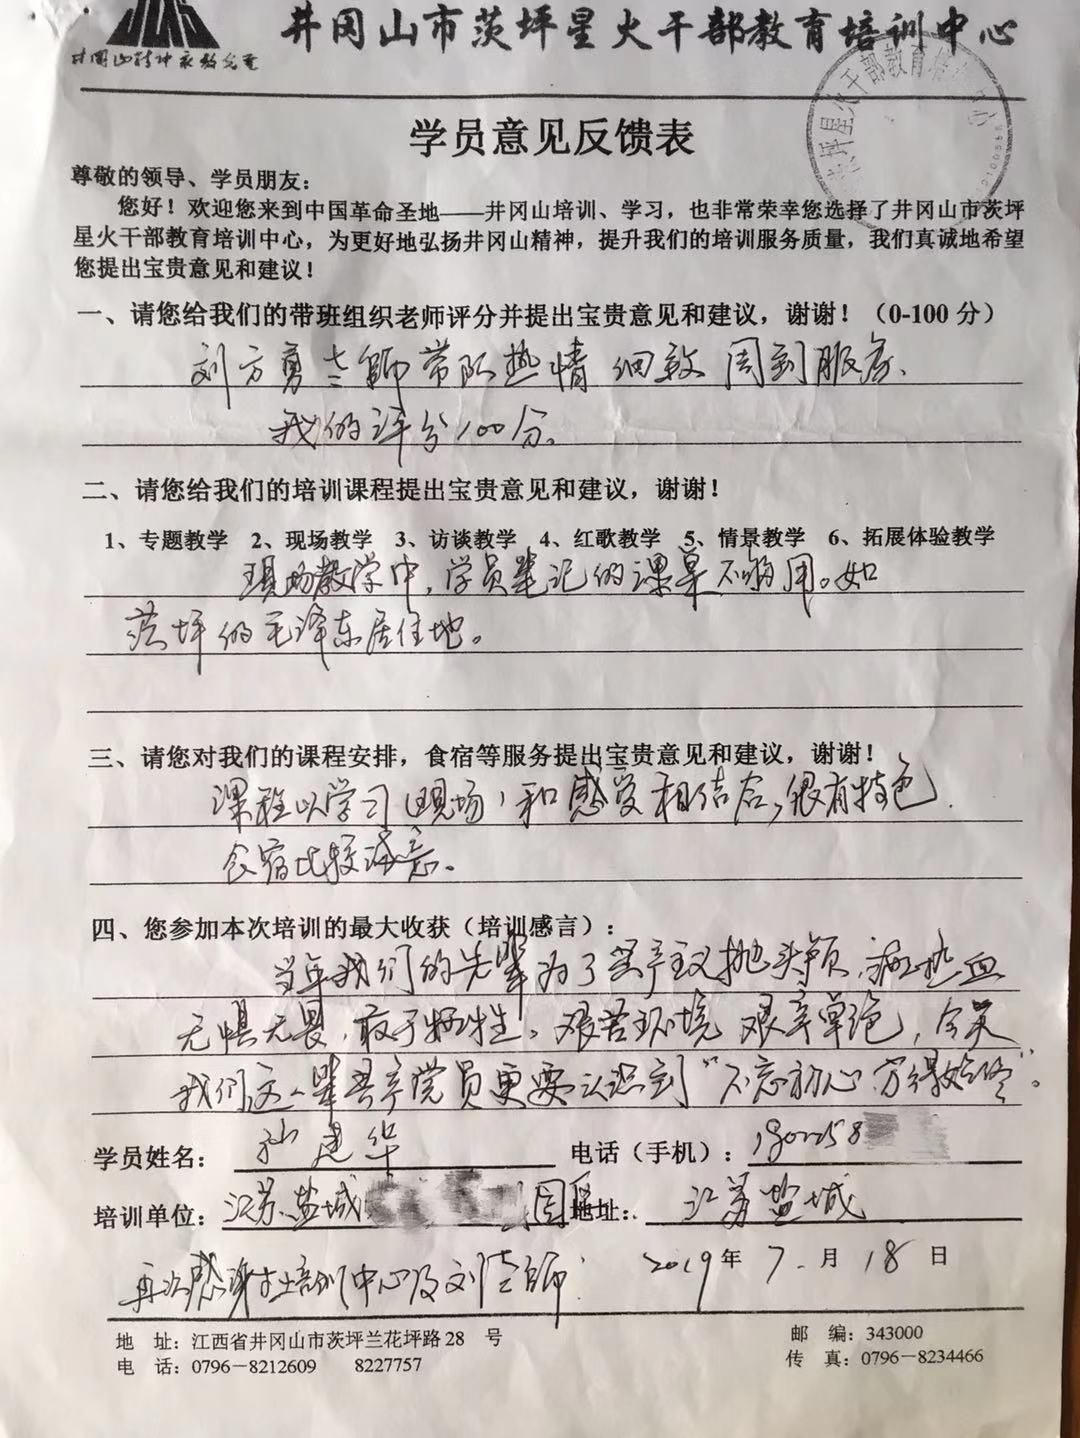 井冈山精神
井冈山市茨坪星火干部教育培训中心
茨坪星火干部教育培训中心
学员意见反馈表
尊敬的领导、学员朋友：
您好！欢迎您来到中国革命圣地——井冈山培训、学习，也非常荣幸您选择了井冈山市茨坪
星火干部教育培训中心，为更好地弘扬井冈山精神，提升我们的培训服务质量，我们真诚地希望
您提出宝贵意见和建议！
一、请您给我们的带班组织老师评分并提出宝贵意见和建议，谢谢！（0-100 分）
刘方勇老師带队热情 细致 周到服务、
我的评分100分。
二、请您给我们的培训课程提出宝贵意见和建议，谢谢！
1、专题教学 2、现场教学 3、访谈教学 4、红歌教学 5、情景教学 6、拓展体验教学
現场教学中，学员笔记的课桌不够用。如
茨坪的毛泽东居住地。
三、请您对我们的课程安排，食宿等服务提出宝贵意见和建议，谢谢！
课程以学习（現场）和感受相结合，很有特色.
食宿比较满意。
四、您参加本次培训的最大收获（培训感言）：
当年我们的先輩为了共产主义抛头颅，洒热血
无惧无畏，敢于牺牲。艰苦环境 艰辛卓绝，今天
我们这一辈共产党员更要认识到“不忘初心 方得始终”。
学员姓名： 孙建华 电话（手机）：
培训单位： 江苏盐城 地址： 江苏盐城
再次感谢 培训中心及刘老師. 2019 年 7 月 18 日
地 址：江西省井冈山市茨坪兰花坪路 28 号 邮 编：343000
电 话：0796－8212609 8227757 传 真：0796－8234466